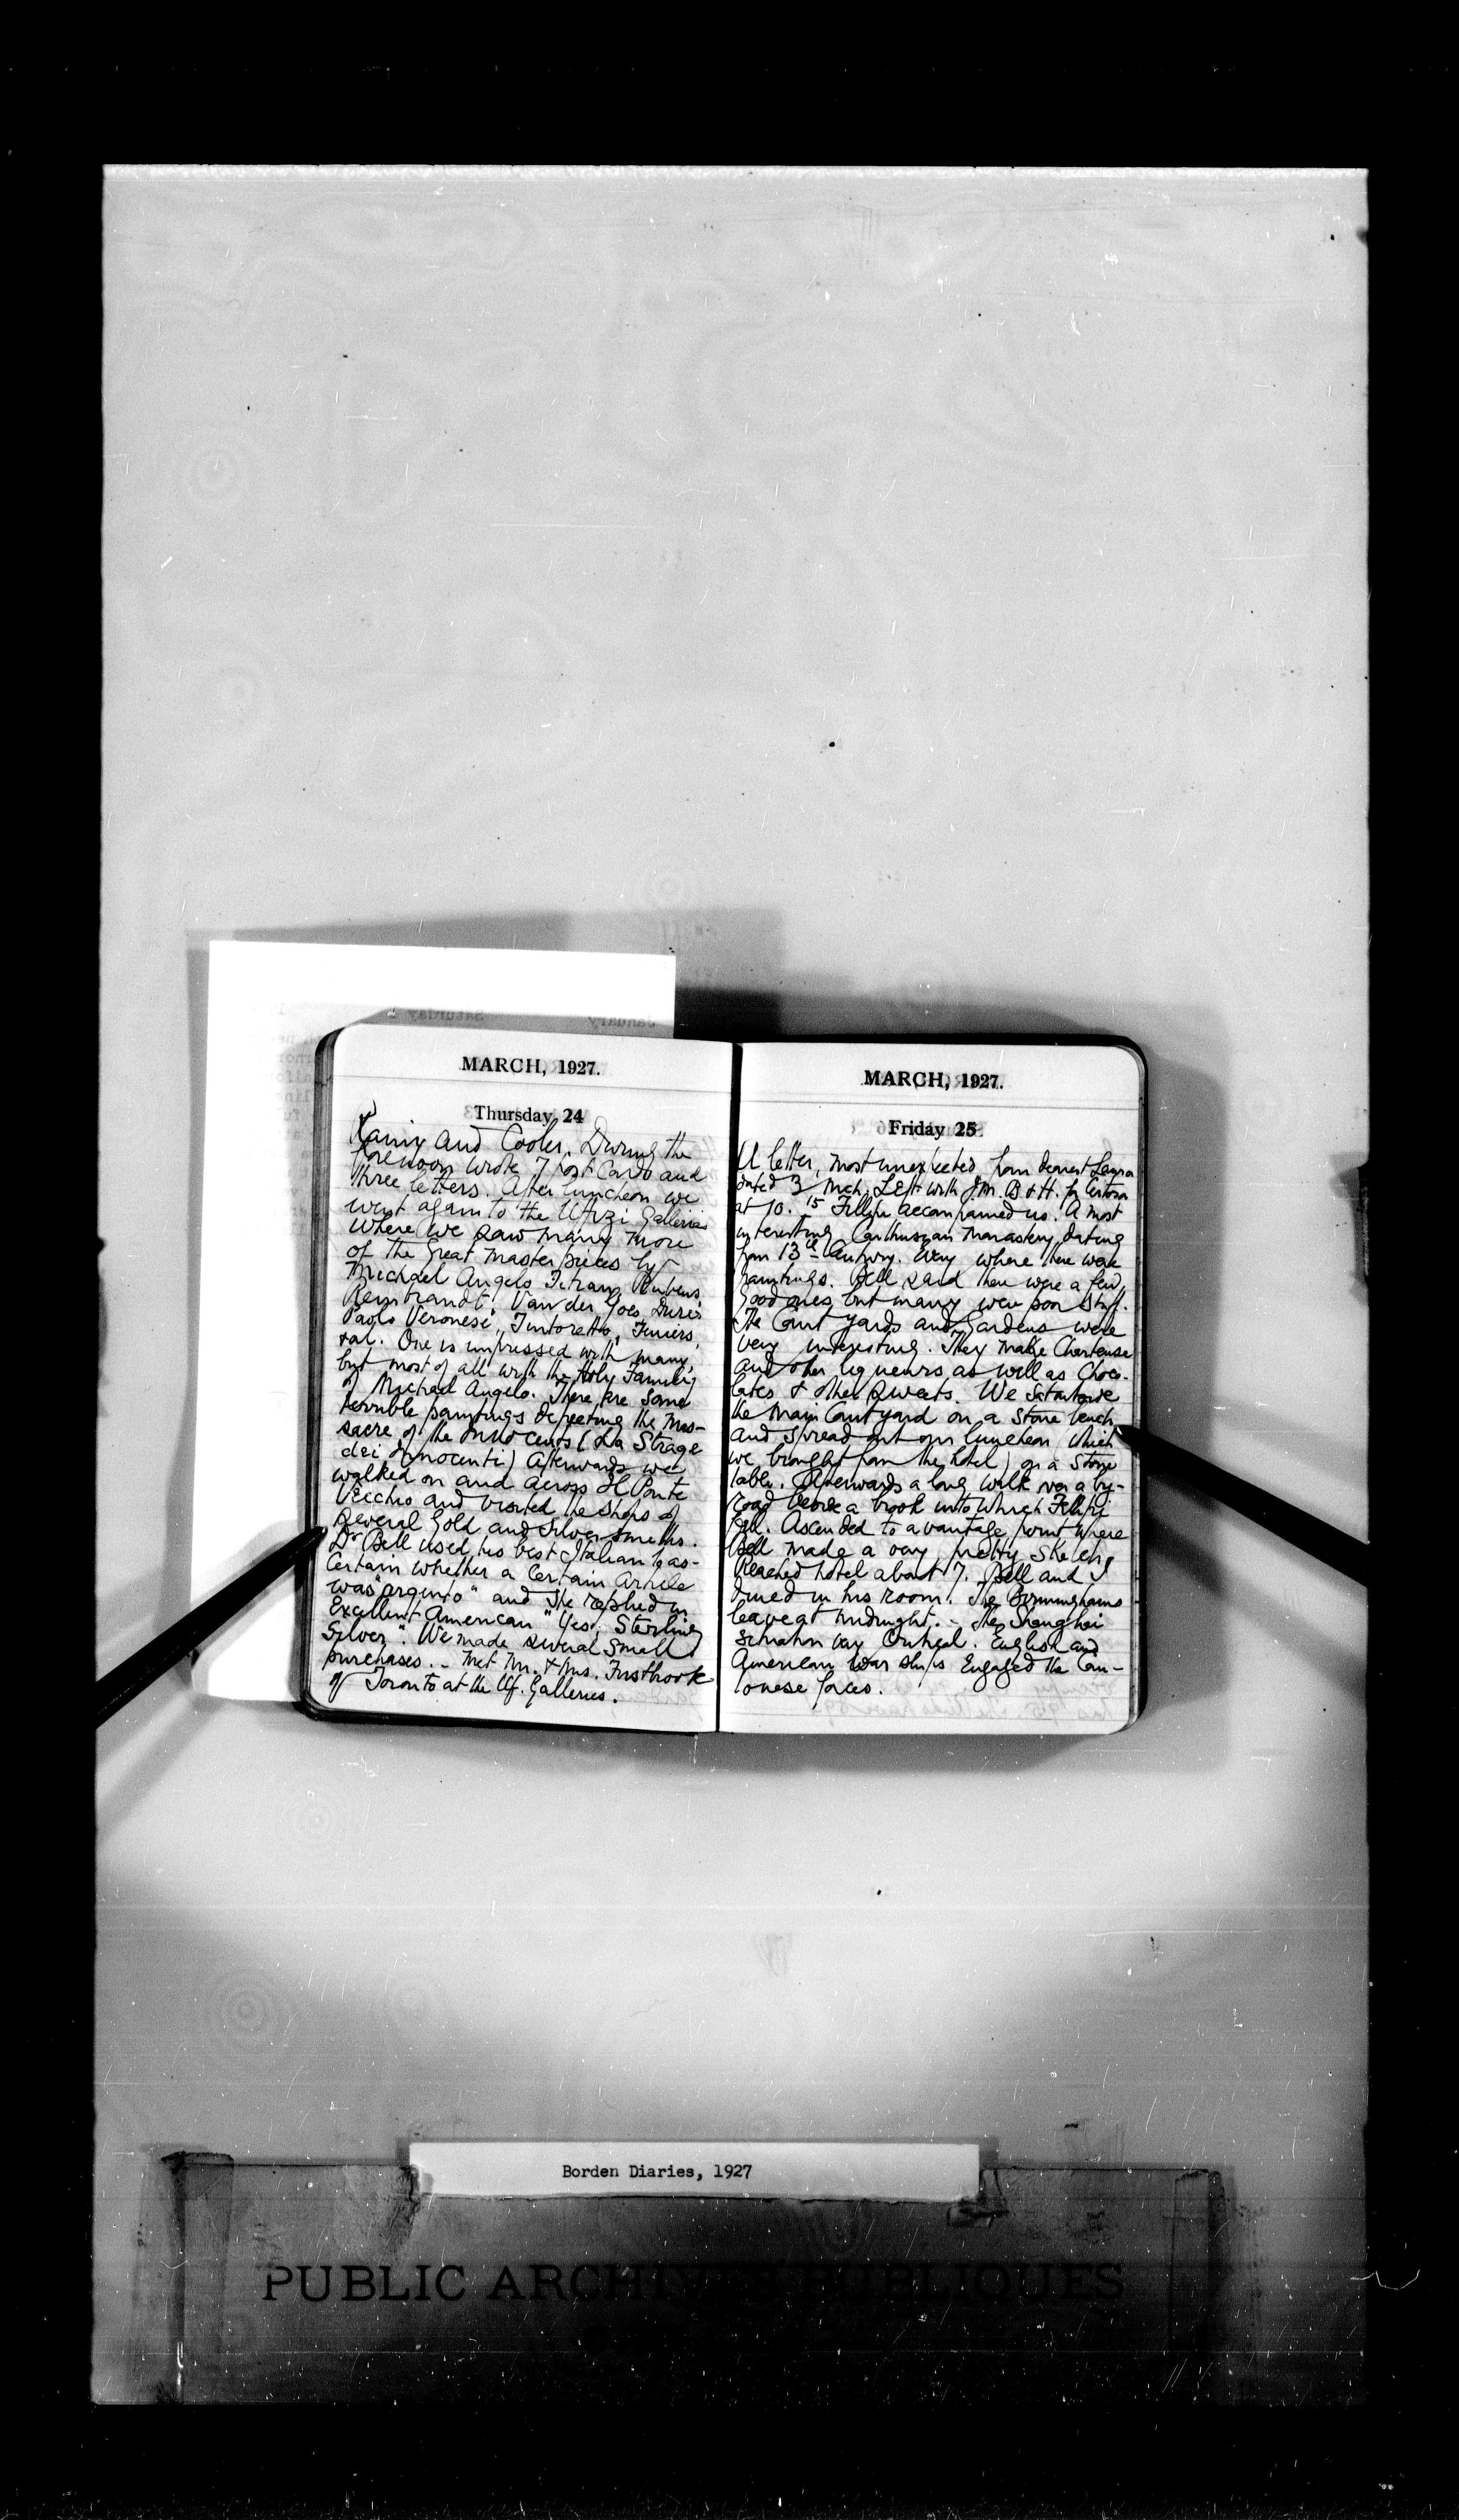 MARCH, 1927.
Thursday 24
Rainy and Cooler. During the
forenoon wrote 7 Post Cards and
three letters. After luncheon we
went again to the Uffizi Galleries
where we saw many more
of the great masterpieces by
Michael Angelo, Titian, Rubens,
Rembrandt, Van der Goes, Durer
Paolo Veronese, Tintoretto, Teniers,
&al. One is impressed with many,
but most of all with the Holy Family
of Michael Angelo. There are some
terrible paintings depicting the Mas-
sacre of the Innocents (La Strage
dei Innocenti) Afterwards we
walked on and across Il Ponte
Vecchio and visited the shops of
several Gold and Silver Smiths.
Dr Bell used his best Italian to as-
certain whether a certain article
was "argento" and she replied in
Excellent American "Yes, Sterling
Silver". We made several small
purchases. - Met Mr. & Mrs. Firstbrook
of Toronto at the Uf. Galleries.
MARCH, 1927.
Friday 25
A letter, most unexpected, from dearest Laura
dated 3 Mch. Left with J.M. B & H. for Certosa
at 10.15 Fillipi accompanied us. A most
interesting Carthusian Monastery dating
from 13th Century. Every where there were
paintings. Bell said there were a few
good ones but many were poor stuff.
The Court yards and Gardens were
very interesting. They make Chartreuse
and other liqueurs as well as Choco-
lates & other sweets. We sat
the main Courtyard on a stone bench
and spread out our luncheon which
we brought from the hotel) on a stone
table. Afterwards a long walk over a by-
road beside a brook into which Fillipi
fell. Ascended to a vantage point where
Bell made a very pretty Sketch,
Reached hotel about 7. Bell and I
dined in his room. The Birminghams
leave at midnight. - The Shanghai
situation very Critical. English and
American War ships Engaged the Can-
tonese forces.
Borden Diaries, 1927
PUBLIC ARCHIVES PUBLIQUES